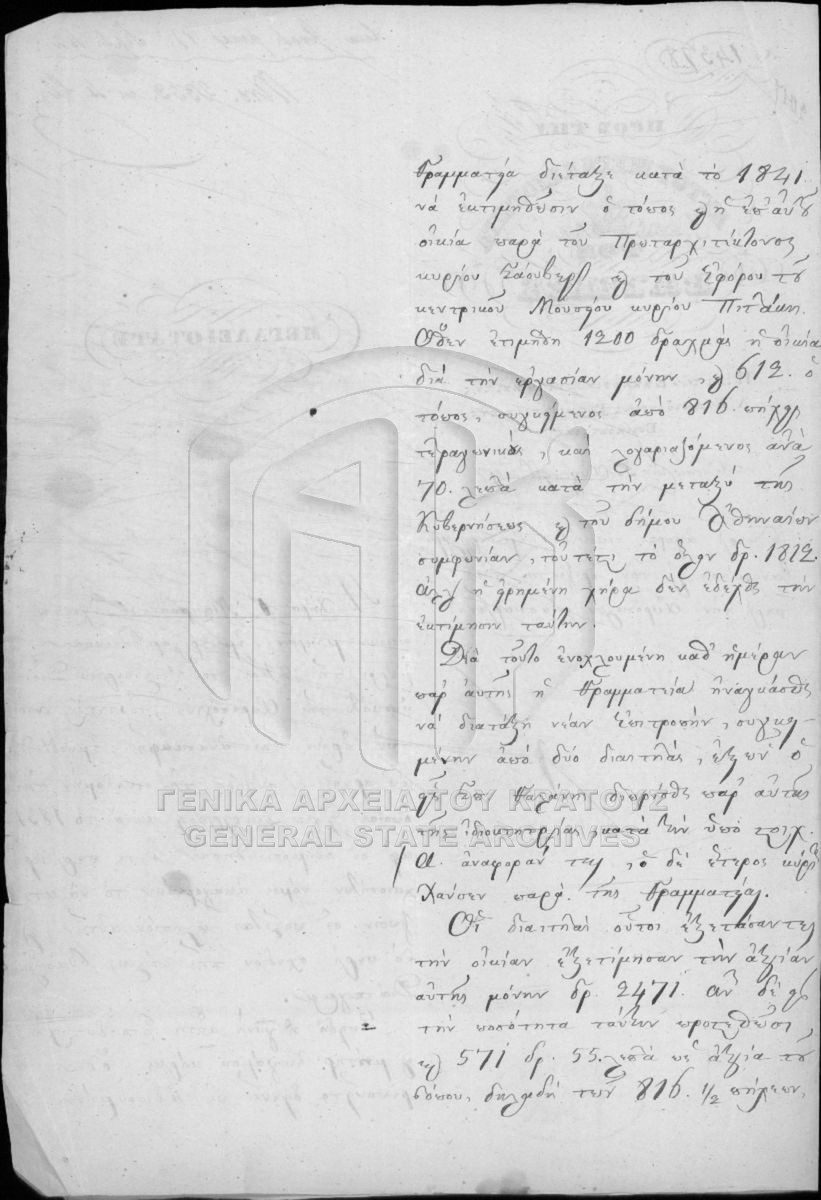 Γραμματεία διέταξε κατὰ τὸ 1841
νὰ ἐκτιμηθῶσιν ὁ τόπος καὶ ἡ ἐπ' αὐτοῦ
οἰκία παρὰ τοῦ Πρωταρχιτέκτονος
κυρίου Σάουβερτ καὶ τοῦ Ἐφόρου τοῦ
κεντρικοῦ Μουσείου κυρίου Πιττάκη.
Ὅθεν ἐτιμήθη 1200 δραχμὰς ἡ οἰκία
διὰ τὴν ἐργασίαν μόνην, καὶ 612. ὁ
τόπος, συγκείμενος ἀπὸ 816 πήχεις
τετραγωνικοὺς, καὶ λογαριαζόμενος ἀνὰ
70. λεπτὰ κατὰ τὴν μεταξὺ τῆς
Κυβερνήσεως καὶ τοῦ δήμου Ἀθηναίων
συμφωνίαν, τουτέστι τὸ ὅλον δρ. 1812.
ἀλλ' ἡ εἰρημένη χήρα δὲν ἐδέχθη τὴν
ἐκτίμησιν ταύτην.
Διὰ τοῦτο ἐνοχλουμένη καθ' ἡμέραν
παρ' αὐτῆς ἡ Γραμματεία ἠναγκάσθη
νὰ διατάξῃ νέαν ἐπιτροπὴν, συγκει-
μένην ἀπὸ δύο διαιτητὰς, ἐξ ὧν ὁ
διωρίσθη παρ' αὐτῆς
τῆς ἰδιοκτητρίας, κατὰ τὴν ὑπὸ στοιχ.
Α. ἀναφοράν της, ὁ δὲ ἕτερος κύριος
Χάνσεν παρὰ τῆς Γραμματείας.
Οἱ διαιτηταὶ οὗτοι ἐξετάσαντες
τὴν οἰκίαν ἐξετίμησαν τὴν ἀξίαν
αὐτῆς μόνην δρ. 2471. ἂν δὲ εἰς
τὴν ποσότητα ταύτην προστεθῶσι
καὶ 571 δρ. 55. λεπτὰ ὡς ἀξία τοῦ
τόπου, δηλαδὴ τῶν 816. 1/2 πήχεων,
ΓΕΝΙΚΑ ΑΡΧΕΙΑ ΤΟΥ ΚΡΑΤΟΥΣ
GENERAL STATE ARCHIVES